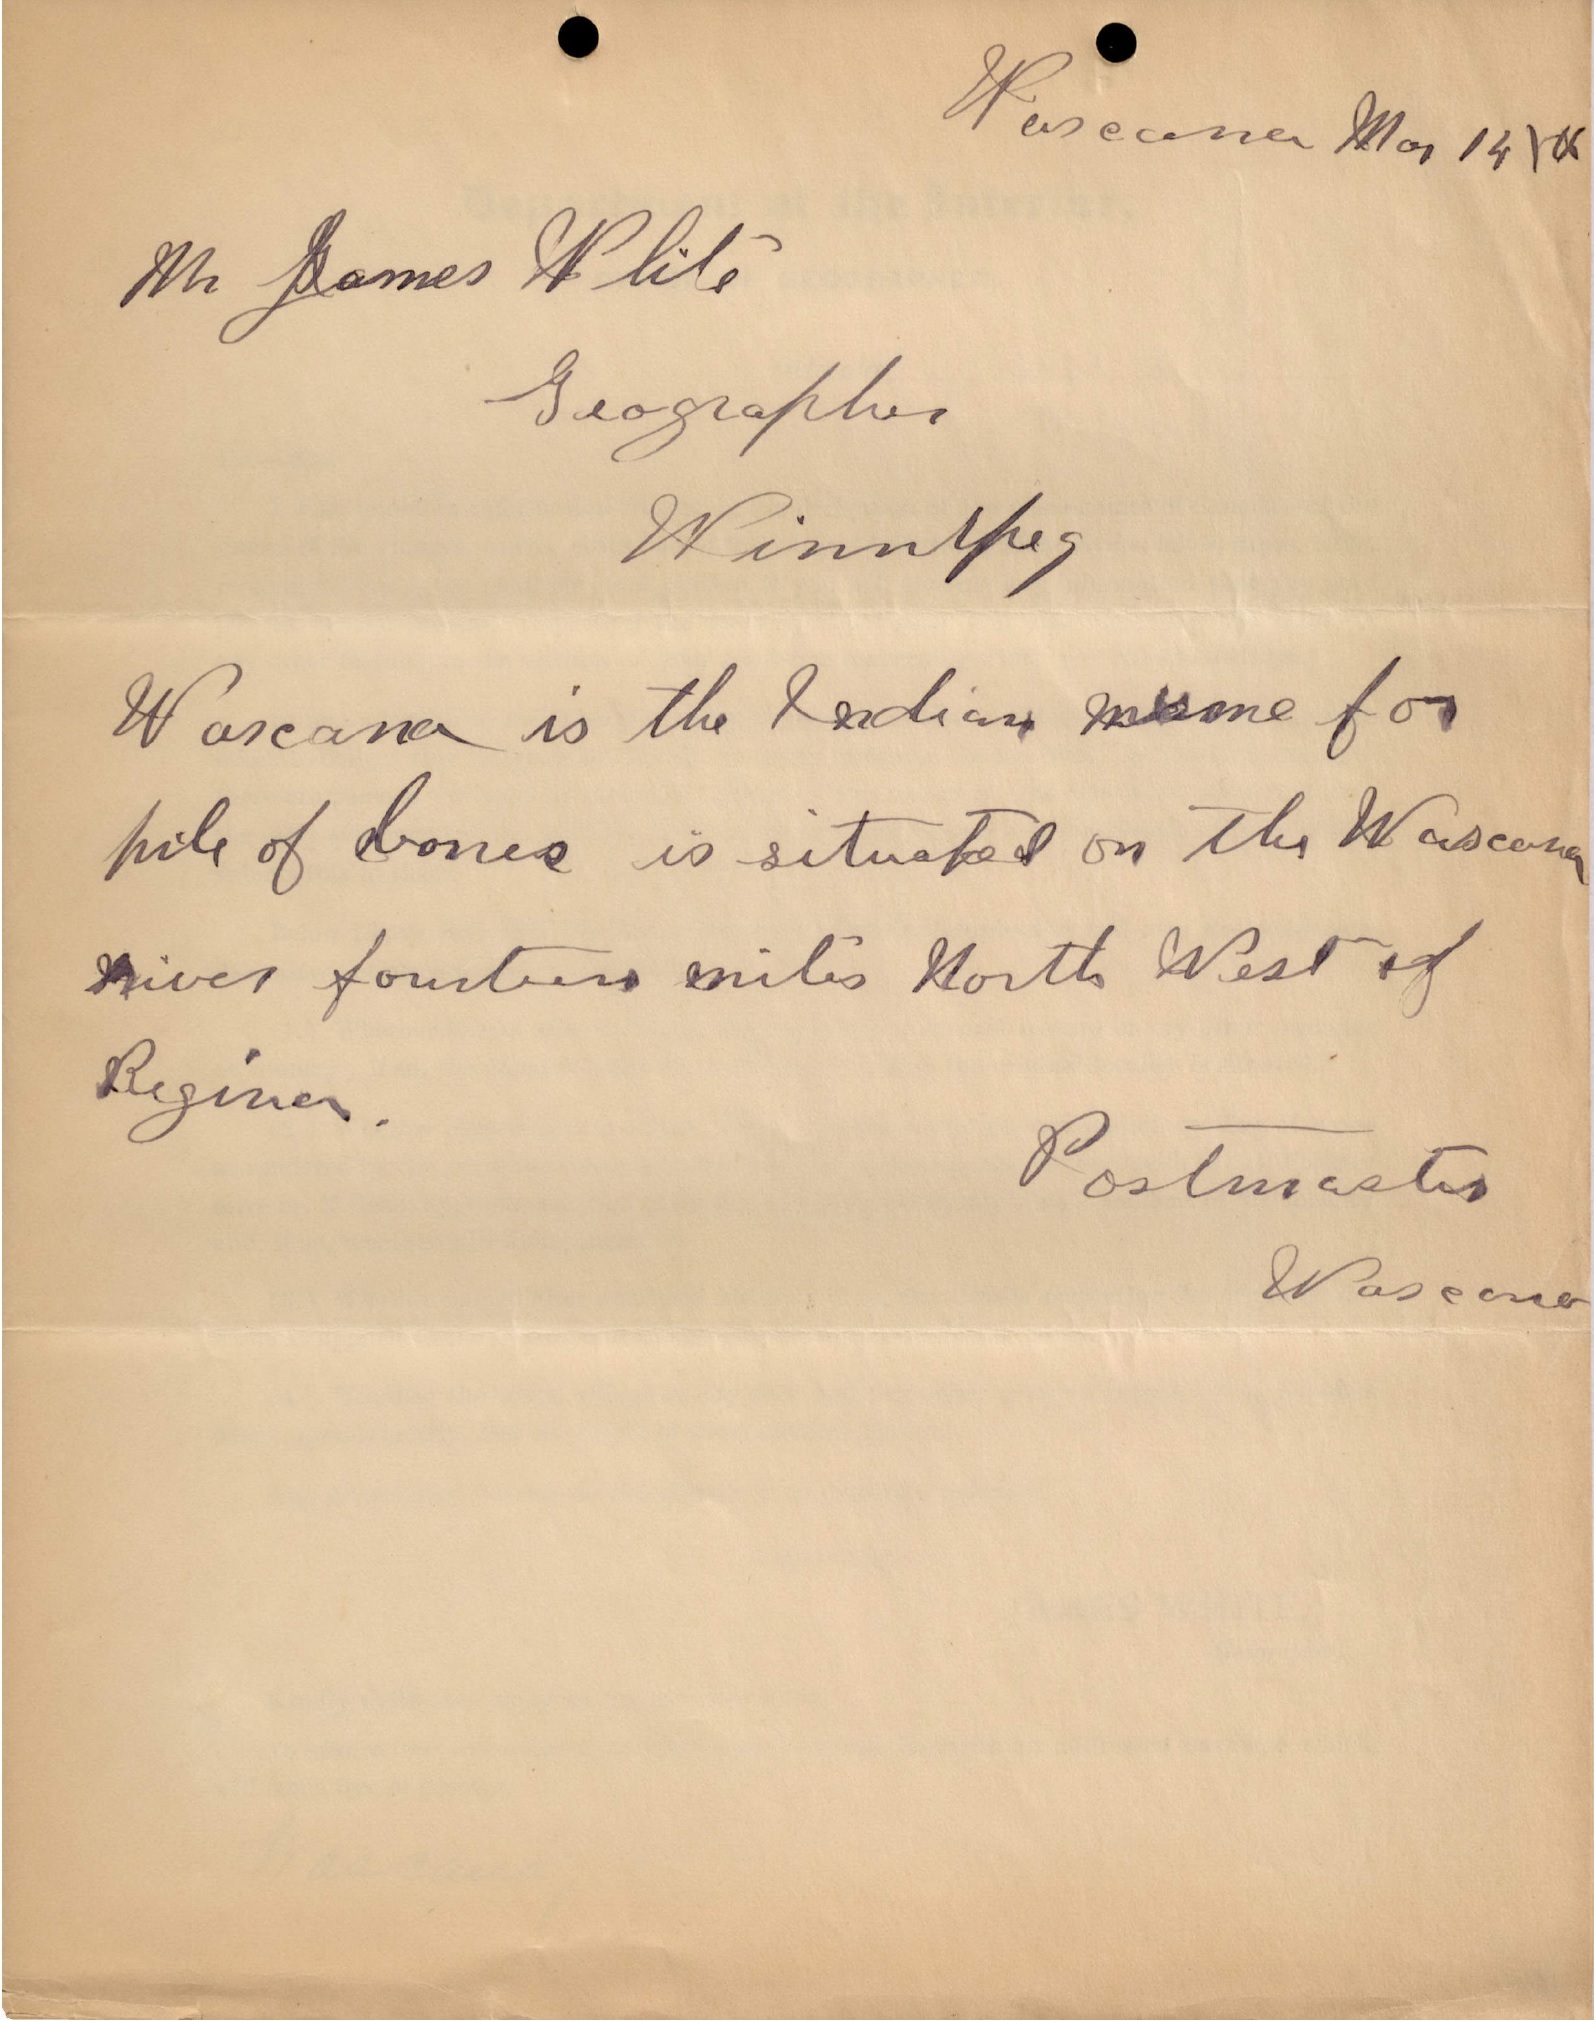 Wascana Mar 14th
Mr James White
Geographer
Winnipeg
Wascana is the Indian name for
pile of bones is situated on the Wascana
river fourteen miles North West of
Regina.
Postmaster
Wascana